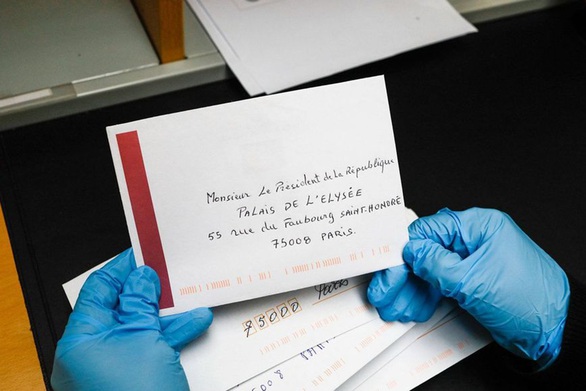 Monsieur Le Président de la République
PALAIS DE L'ELYSÉE
55 rue du Faubourg SAINT-HONORÉ
75008 PARIS.
75000